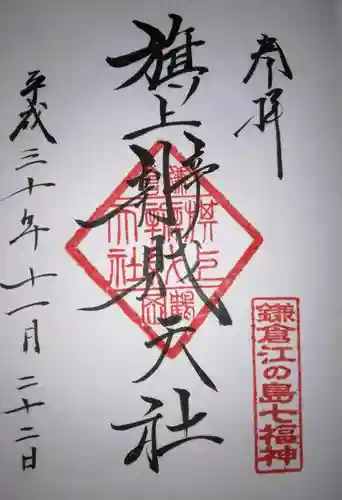 奉拝
旗上辨財天社
平成三十年十一月二十二日
鎌倉江の島七福神